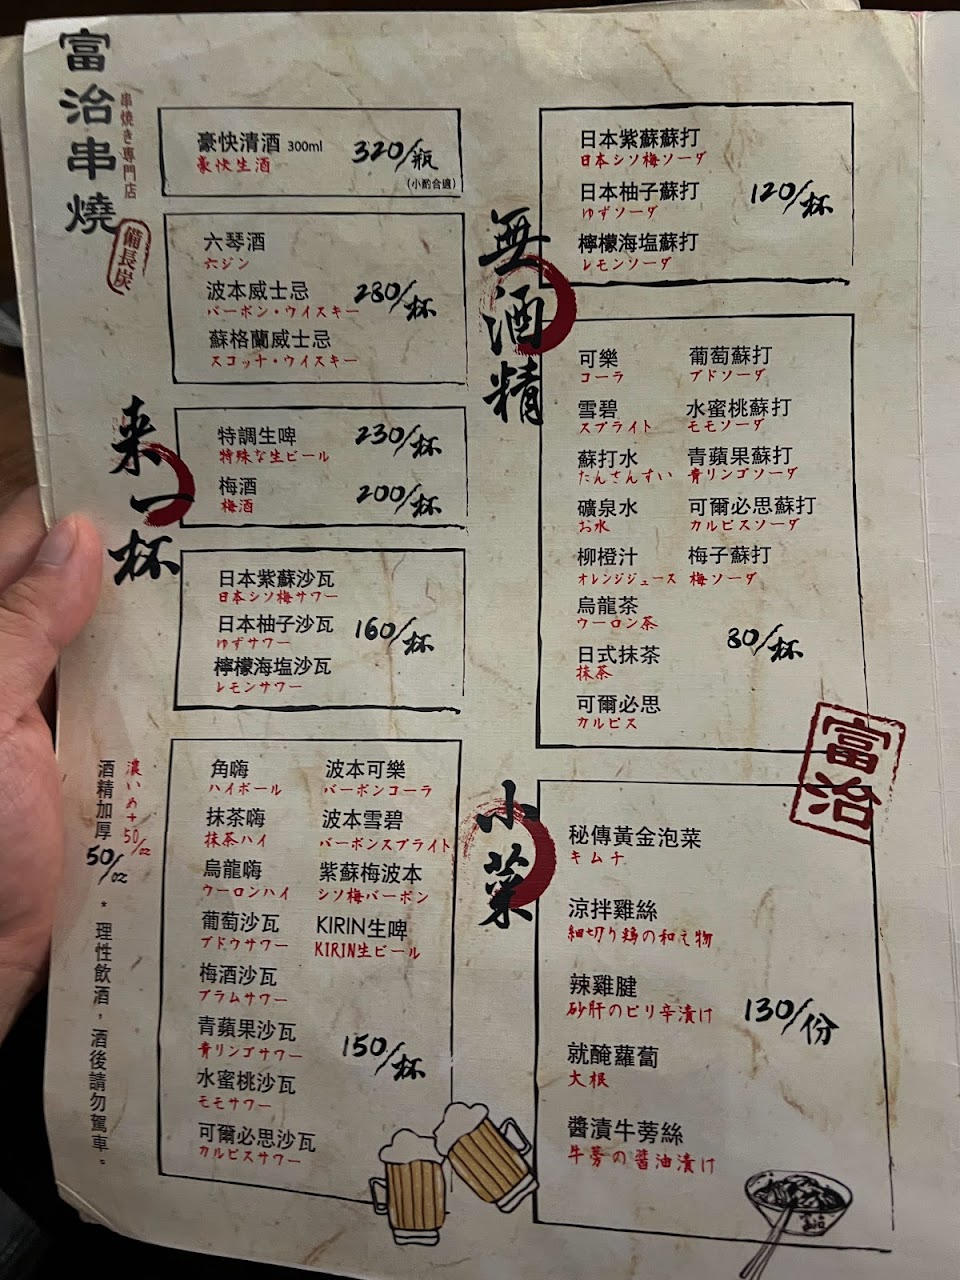 富治串燒
串焼き専門店
備長炭
来一杯
豪快清酒 300ml
豪快生酒
320/瓶
(小酌合適)
六琴酒
六ジン
波本威士忌
バーボン・ウイスキー
蘇格蘭威士忌
スコッチ・ウイスキー
280/杯
特調生啤
特殊な生ビール
230/杯
梅酒
梅酒
200/杯
日本紫蘇沙瓦
日本シソ梅サワー
日本柚子沙瓦
ゆずサワー
檸檬海塩沙瓦
レモンサワー
160/杯
角嗨
ハイボール
抹茶嗨
抹茶ハイ
烏龍嗨
ウーロンハイ
葡萄沙瓦
ブドウサワー
梅酒沙瓦
プラムサワー
青蘋果沙瓦
青リンゴサワー
水蜜桃沙瓦
モモサワー
可爾必思沙瓦
カルピスサワー
波本可樂
バーボンコーラ
波本雪碧
バーボンスプライト
紫蘇梅波本
シソ梅バーボン
KIRIN生啤
KIRIN生ビール
150/杯
濃いめ+50/oz
酒精加厚50/oz
* 理性飲酒，酒後請勿駕車。
無酒精
日本紫蘇蘇打
日本シソ梅ソーダ
日本柚子蘇打
ゆずソーダ
檸檬海塩蘇打
レモンソーダ
120/杯
可樂
コーラ
雪碧
スプライト
蘇打水
たんさんすい
礦泉水
お水
柳橙汁
オレンジジュース
烏龍茶
ウーロン茶
日式抹茶
抹茶
可爾必思
カルピス
葡萄蘇打
ブドソーダ
水蜜桃蘇打
モモソーダ
青蘋果蘇打
青リンゴソーダ
可爾必思蘇打
カルピスソーダ
梅子蘇打
梅ソーダ
80/杯
富治
小菜
秘傳黃金泡菜
キムチ
涼拌雞絲
細切り鶏の和え物
辣雞腱
砂肝のピリ辛漬け
就醃蘿蔔
大根
醬漬牛蒡絲
牛蒡の醤油漬け
130/份